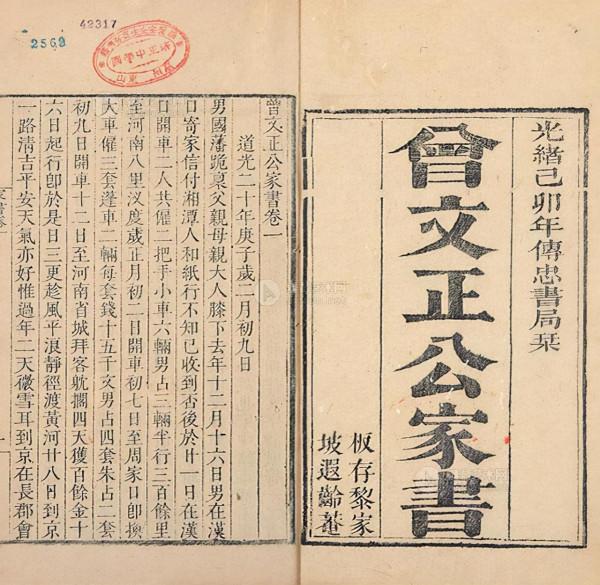 光緒己卯年傳忠書局栞
曾文正公家書
板存黎家
坡遐齡菴
42317
2562
曾文正公家書卷一
道光二十年庚子歲二月初九日
男國藩跪稟父親母親大人膝下去年十二月十六日男在漢
口寄家信付湘潭人和紙行不知已收到否後於廿一日在漢
口開車二人共僱二把手小車六輛男占三輛半行三百餘里
至河南八里汊度歲正月初二日開車初七日至周家口卽換
大車僱三套篷車二輛每套錢十五千文男占四套朱占二套
初九日開車十二日至河南省城拜客躭擱四天獲百餘金十
六日起行卽於是日三更趁風平浪靜徑渡黃河廿八日到京
一路淸吉平安天氣亦好惟過年二天微雪耳到京在長郡會